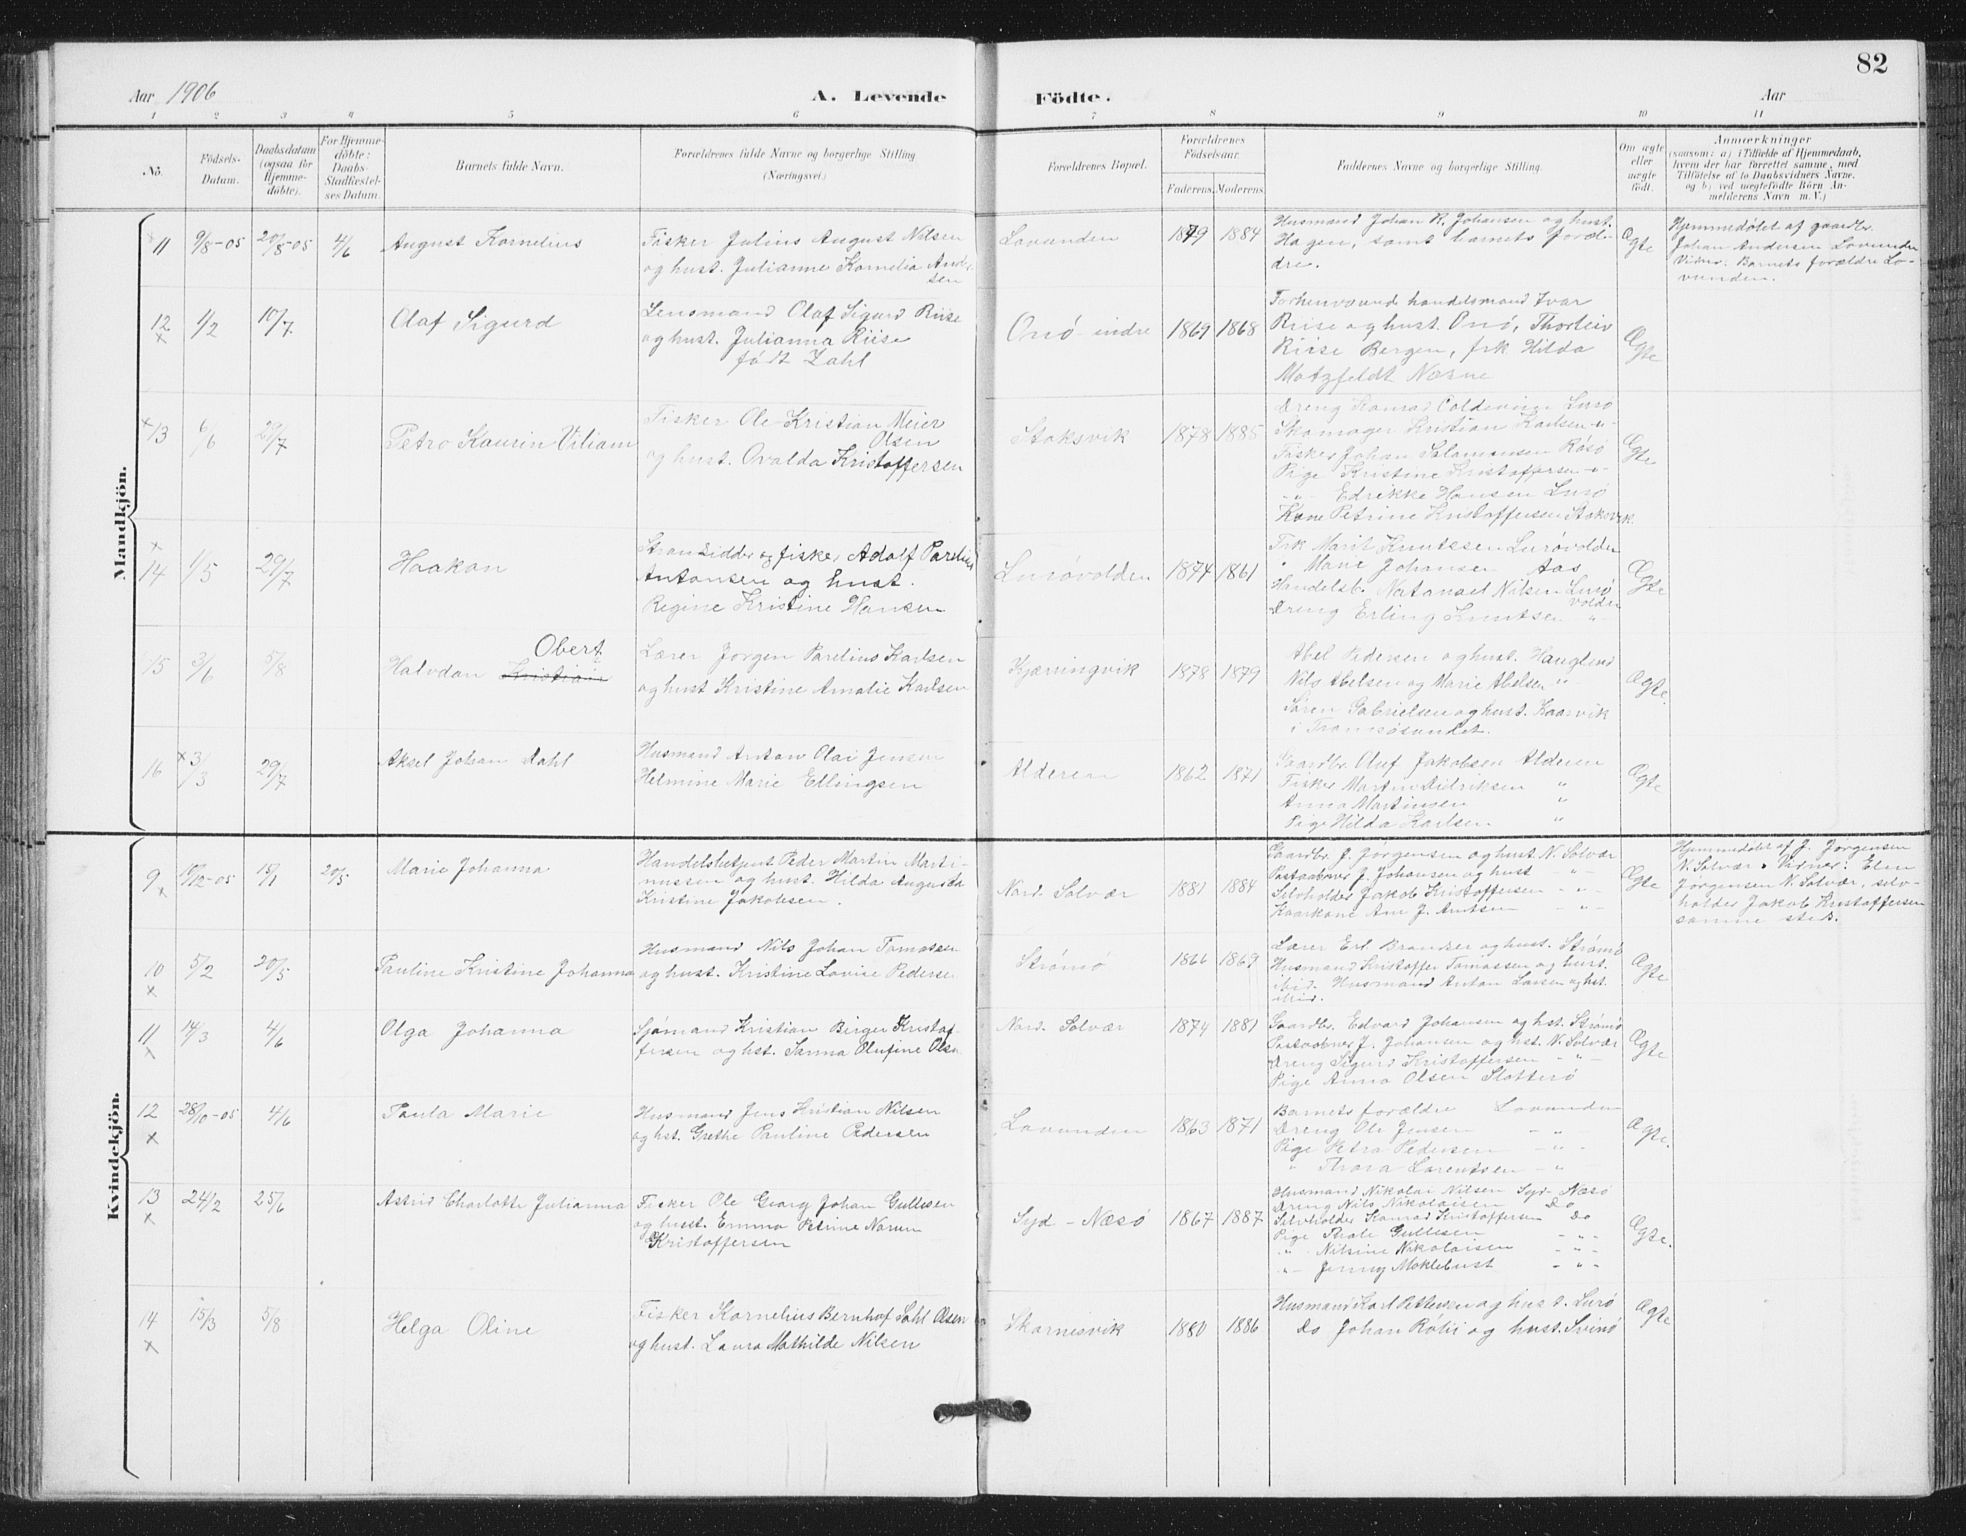 82
Aar 1906
A. Levende Födte.
Aar
1 2 3 4 5 6 7 8 9 10 11
No.
Födsels-
Datum.
Daabsdatum
(ogsaa for
Hjemme-
döbte).
For Hjemme-
döbte:
Daabs-
Stadfæstel-
ses Datum.
Barnets fulde Navn.
Forældrenes fulde Navne og borgerlige Stilling
(Næringsvei.)
Forældrenes Bopæl.
Forældrenes
Födselsaar.
Faderens. Moderens.
Faddernes Navne og borgerlige Stilling.
Om ægte
eller
uægte
födt.
Anmærkninger
(saasom: a) i Tilfælde af Hjemmedaab,
hvem der har forrettet samme, med
Tilföielse af to Daabsvidners Navne.
og b) ved uægtefödte Börn An-
melderens Navn m. V.)
Mandkjön.
11 9/8-05 20/8-05 4/6
August Kornelius
Fisker Julius August Nilsen
og hust. Julianne Kornelia Andr
sen
Lovunden
1879 1884
Husmand Johan R. Johansen og hust.
Hagen, samt barnets foræl-
dre.
Ægte
Hjemmedøbt af gaardbr.
Johan Andersen Lovunden
Vidner: Barnets forældre Lo-
vunden.
12 1/2 10/7
Olaf Sigurd
Lensmand Olaf Sigurd Riise
og hust. Julianna Riise
født Zahl
Onø indre
1869 1868
Forhenværende handelsmand Ivar
Riise og hust. Onø, Thorleiv
Riise Bergen, frk Hilda
Motzfeldt Nesne
Ægte
13 6/6 29/7
Petro Kaurin Viliam
Fisker Ole Kristian Meier
Olsen
og hust. Ovalda Kristoffersen
Stoksvik
1878 1885
Dreng Konrad Coldevin Lurø
Skomager Kristian Karlsen -"-
Fisker Johan Salamonsen Røsø
Pige Kristine Kristoffersen -"-
-"- Edrikke Hansen Lurø
Kone Petrine Kristoffersen Stoksvik
Ægte
14 1/5 29/7
Haakon
Strandsidder og fisker Adolf Parelius
Antonsen og hust.
Regine Kristine Hansen
Lurøvolden
1874 1861
Frk Marit Knutssen Lurøvolden
" Marie Johansen Aas
Handelsb. Natanael Nilsen Lurø
volden
Dreng Erling Knutsen "
Ægte
15 3/6 5/8
Obert
Halvdan Kristian
Lærer Jørgen Parelius Karlsen
og hust Kristine Amalie Karlsen
Kjærringvik
1878 1879
Abel Pedersen og hust. Haugland
Nils Abelsen og Marie Abelsen "
Søren Gabrielsen og hust. Kaarvik
i Tromsøsundet.
Ægte.
16 3/3 29/7
Aksel Johan Dahl
Husmand Anton Olai Jensen
Helmine Marie Ellingsen
Alderen
1862 1871
Gaardbr. Oluf Jakobsen Alderen
Fisker Martin Didriksen "
Anna Martinsen
Pige Hilda Karlsen "
Ægte
Kvindekjön.
9 19/12-05 15/1 20/5
Marie Johanna
Handelsbetjent Peder Martin Marti-
nussen og hust. Hilda Augusta
Kristine Jakobsen.
Nord. Solvær
1881 1884
Gaardbr. J. Jørgensen og hust. N. Solvær
Postaabner J. Johansen og hust - " -
Selvholder Jakob Kristoffersen - " -
Kaarkone Ane J. Arntsen - " -
Ægte
Hjemmedøbt af J. Jørgensen
N. Solvær. Vidner: Elen
Jørgensen N. Solvær, selv-
holder Jakob Kristoffersen
samme sted.
10 5/2 20/5
Pauline Kristine Johanna
Husmand Nils Johan Tomassen
og hust. Kristine Lovise Pederse
Strømø
1866 1869
Lærer Erl. Brandser og hust. Strømø
Husmand Kristoffer Tomassen og hust.
ibid. Husmand Anton Larsen og hst.
ibid.
Ægte
11 14/3 4/6
Olga Johanna
Sjømand Kristian Birger Kristof-
fersen og hst. Sanna Olufine Olse
Nord. Solvær
1874 1881
Gaardbr. Edvard Johansen og hst. Strømø
Postaabner J. Johansen og hst. N. Solvær
Dreng Sigurd Kristoffersen - " -
Pige Anna Olsen Slotterø
Ægte
12 28/10-05 4/6
Paula Marie
Husmand Jens Kristian Nilsen
og hst. Grethe Pauline Pedersen
Lovunden
1863 1871
Barnets forældre Lovunden
Dreng Ole Jensen - " -
Pige Petra Pedersen - " -
" Thora Lorentsen - " -
Ægte.
13 24/2 25/6
Astrid Charlotte Julianna
Fisker Ole Georg Johan Gullesen
og hust. Emma Petrine Norum
Kristoffersen
Syd-Næsø
1867 1887
Husmand Nikolai Nilsen Syd-Næsø
Dreng Nils Nikolaisen Do
Selvholder Konrad Kristoffersen Do
Pige Thale Gullesen - " -
" - Nilsine Nikolaisen - " -
" - Jenny Moklebust - " -
Ægte.
14 15/3 5/8
Helga Oline
Fisker Kornelius Bernhof Sahl Olsen
og hust. Laura Mathilde Nilsen
Skarnesvik
1880 1886
Husmand Karl Pettersen og hust. Lurø
Do Johan Røtii og hust. Svinø
Ægte